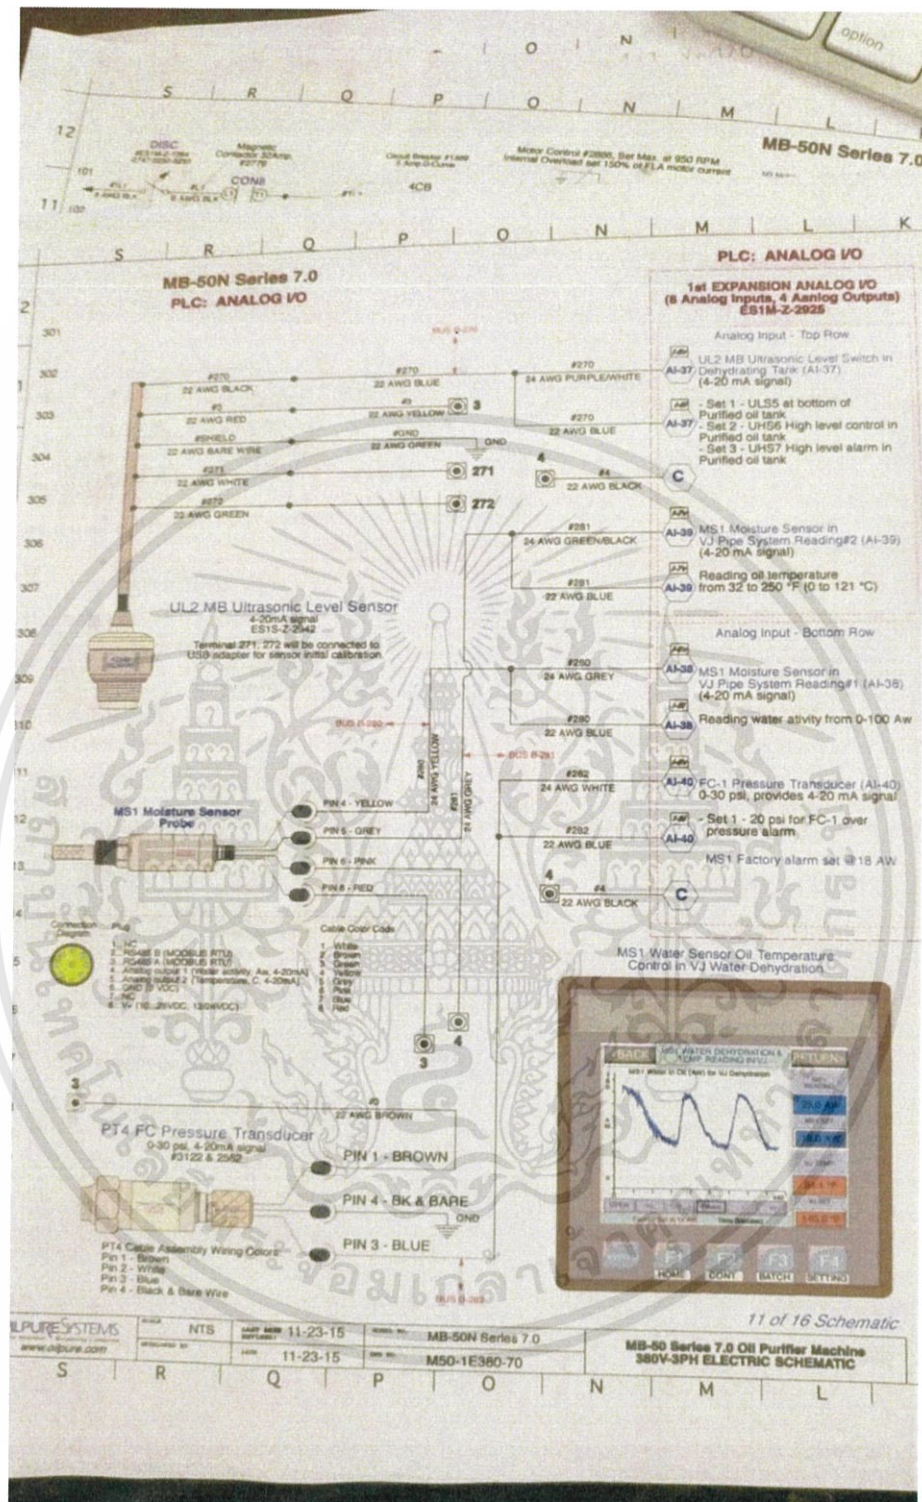 option
O N
S R Q P O N M L
12
DISC
Magnetic
Contactor 32Amp.
#2779
CON8
Circuit Breaker #1389
4CB
Motor Control #2886, Set Max. at 950 RPM
Internal Overload set 150% of FLA motor current
MB-50N Series 7.0
101
11 102
S R Q P O N M L K
MB-50N Series 7.0
PLC: ANALOG I/O
PLC: ANALOG I/O
1st EXPANSION ANALOG I/O
(8 Analog Inputs, 4 Aanlog Outputs)
ES1M-Z-2925
Analog Input - Top Row
2
301
302
303
304
305
306
307
308
309
310
#270
22 AWG BLACK
#270
22 AWG BLUE
#270
24 AWG PURPLE/WHITE
AI-37
UL2 MB Ultrasonic Level Switch in
Dehydrating Tank (AI-37)
(4-20 mA signal)
#3
22 AWG RED
#3
22 AWG YELLOW
3
#270
22 AWG BLUE
AI-37
- Set 1 - ULS5 at bottom of
Purified oil tank
- Set 2 - UHS6 High level control in
Purified oil tank
- Set 3 - UHS7 High level alarm in
Purified oil tank
#SHIELD
22 AWG BARE WIRE
#GND
22 AWG GREEN
GND
#271
22 AWG WHITE
271
4
#4
22 AWG BLACK
C
#272
22 AWG GREEN
272
#281
24 AWG GREEN/BLACK
AI-39
MS1 Moisture Sensor in
VJ Pipe System Reading#2 (AI-39)
(4-20 mA signal)
#281
22 AWG BLUE
AI-39
Reading oil temperature
from 32 to 250 °F (0 to 121 °C)
UL2 MB Ultrasonic Level Sensor
4-20mA signal
ES1S-Z-2942
Terminal 271, 272 will be connected to
USB adapter for sensor initial calibration
Analog Input - Bottom Row
#280
24 AWG GREY
AI-38
MS1 Moisture Sensor in
VJ Pipe System Reading#1 (AI-38)
(4-20 mA signal)
#280
22 AWG BLUE
AI-38
Reading water ativity from 0-100 Aw
BUS B-280
BUS B-281
#280
24 AWG YELLOW
#281
24 AWG GREY
#282
24 AWG WHITE
AI-40
FC-1 Pressure Transducer (AI-40)
0-30 psi, provides 4-20 mA signal
#282
22 AWG BLUE
AI-40
- Set 1 - 20 psi for FC-1 over
pressure alarm
MS1 Factory alarm set @18 AW
4
#4
22 AWG BLACK
C
MS1 Moisture Sensor
Probe
PIN 4 - YELLOW
PIN 5 - GREY
PIN 6 - PINK
PIN 8 - RED
Connection
Diagram
Plug
1. NC
2. RS485 B (MODBUS RTU)
3. RS485 A (MODBUS RTU)
4. Analog output 1 (Water activity, Aw, 4-20mA)
5. Analog output 2 (Temperature, C, 4-20mA)
6. GND (0 VDC)
7. NC
Cable Color Code
1 - White
2 - Brown
3 - Green
4 - Yellow
5 - Grey
6 - Pink
7 - Blue
8 - Red
3
4
MS1 Water Sensor Oil Temperature
Control in VJ Water Dehydration
BACK
MS1 WATER DEHYDRATION &
TEMP READING IN VJ
RETURN
MS1 Water in Oil (AW) for VJ Dehydration
HOME
CONT.
BATCH
SETTING
3
#3
22 AWG BROWN
PT4 FC Pressure Transducer
0-30 psi, 4-20mA signal
#3122 & 2562
PIN 1 - BROWN
PIN 4 - BK & BARE
GND
PIN 3 - BLUE
PT4 Cable Assembly Wiring Colors
Pin 1 - Brown
Pin 2 - White
Pin 3 - Blue
Pin 4 - Black & Bare Wire
11 of 16 Schematic
ILPURE SYSTEMS
www.oilpure.com
NTS
11-23-15
MB-50N Series 7.0
11-23-15
M50-1E380-70
MB-50 Series 7.0 Oil Purifier Machine
380V-3PH ELECTRIC SCHEMATIC
S R Q P O N M L